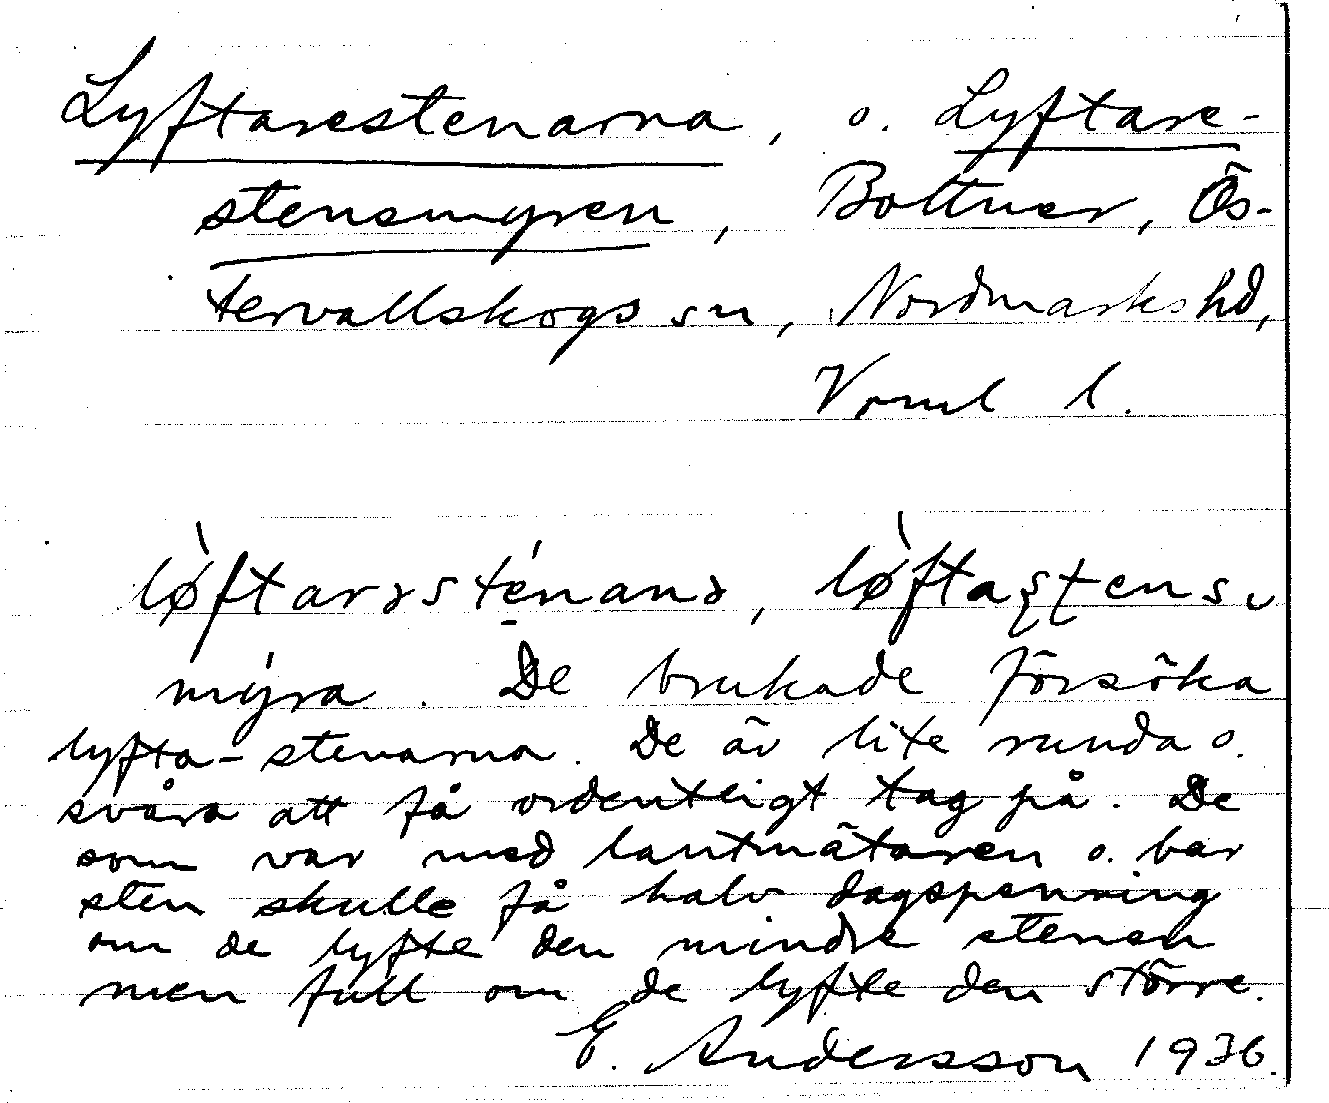 Lyftarestenarna, o. Lyftare-
stensmyren, Bottner, Ös-
tervallskogs sn, Nordmarks hd,
Vrml l.
mýra. De brukade försöka
lyfta-stenarna. De är lite runda o.
svåra att få ordentligt tag på. De
som var med lantmätaren o. bar
sten skulle få halv dagspenning
om de lyfte den mindre stenen
men full om de lyfte den större.
E. Andersson 1936.